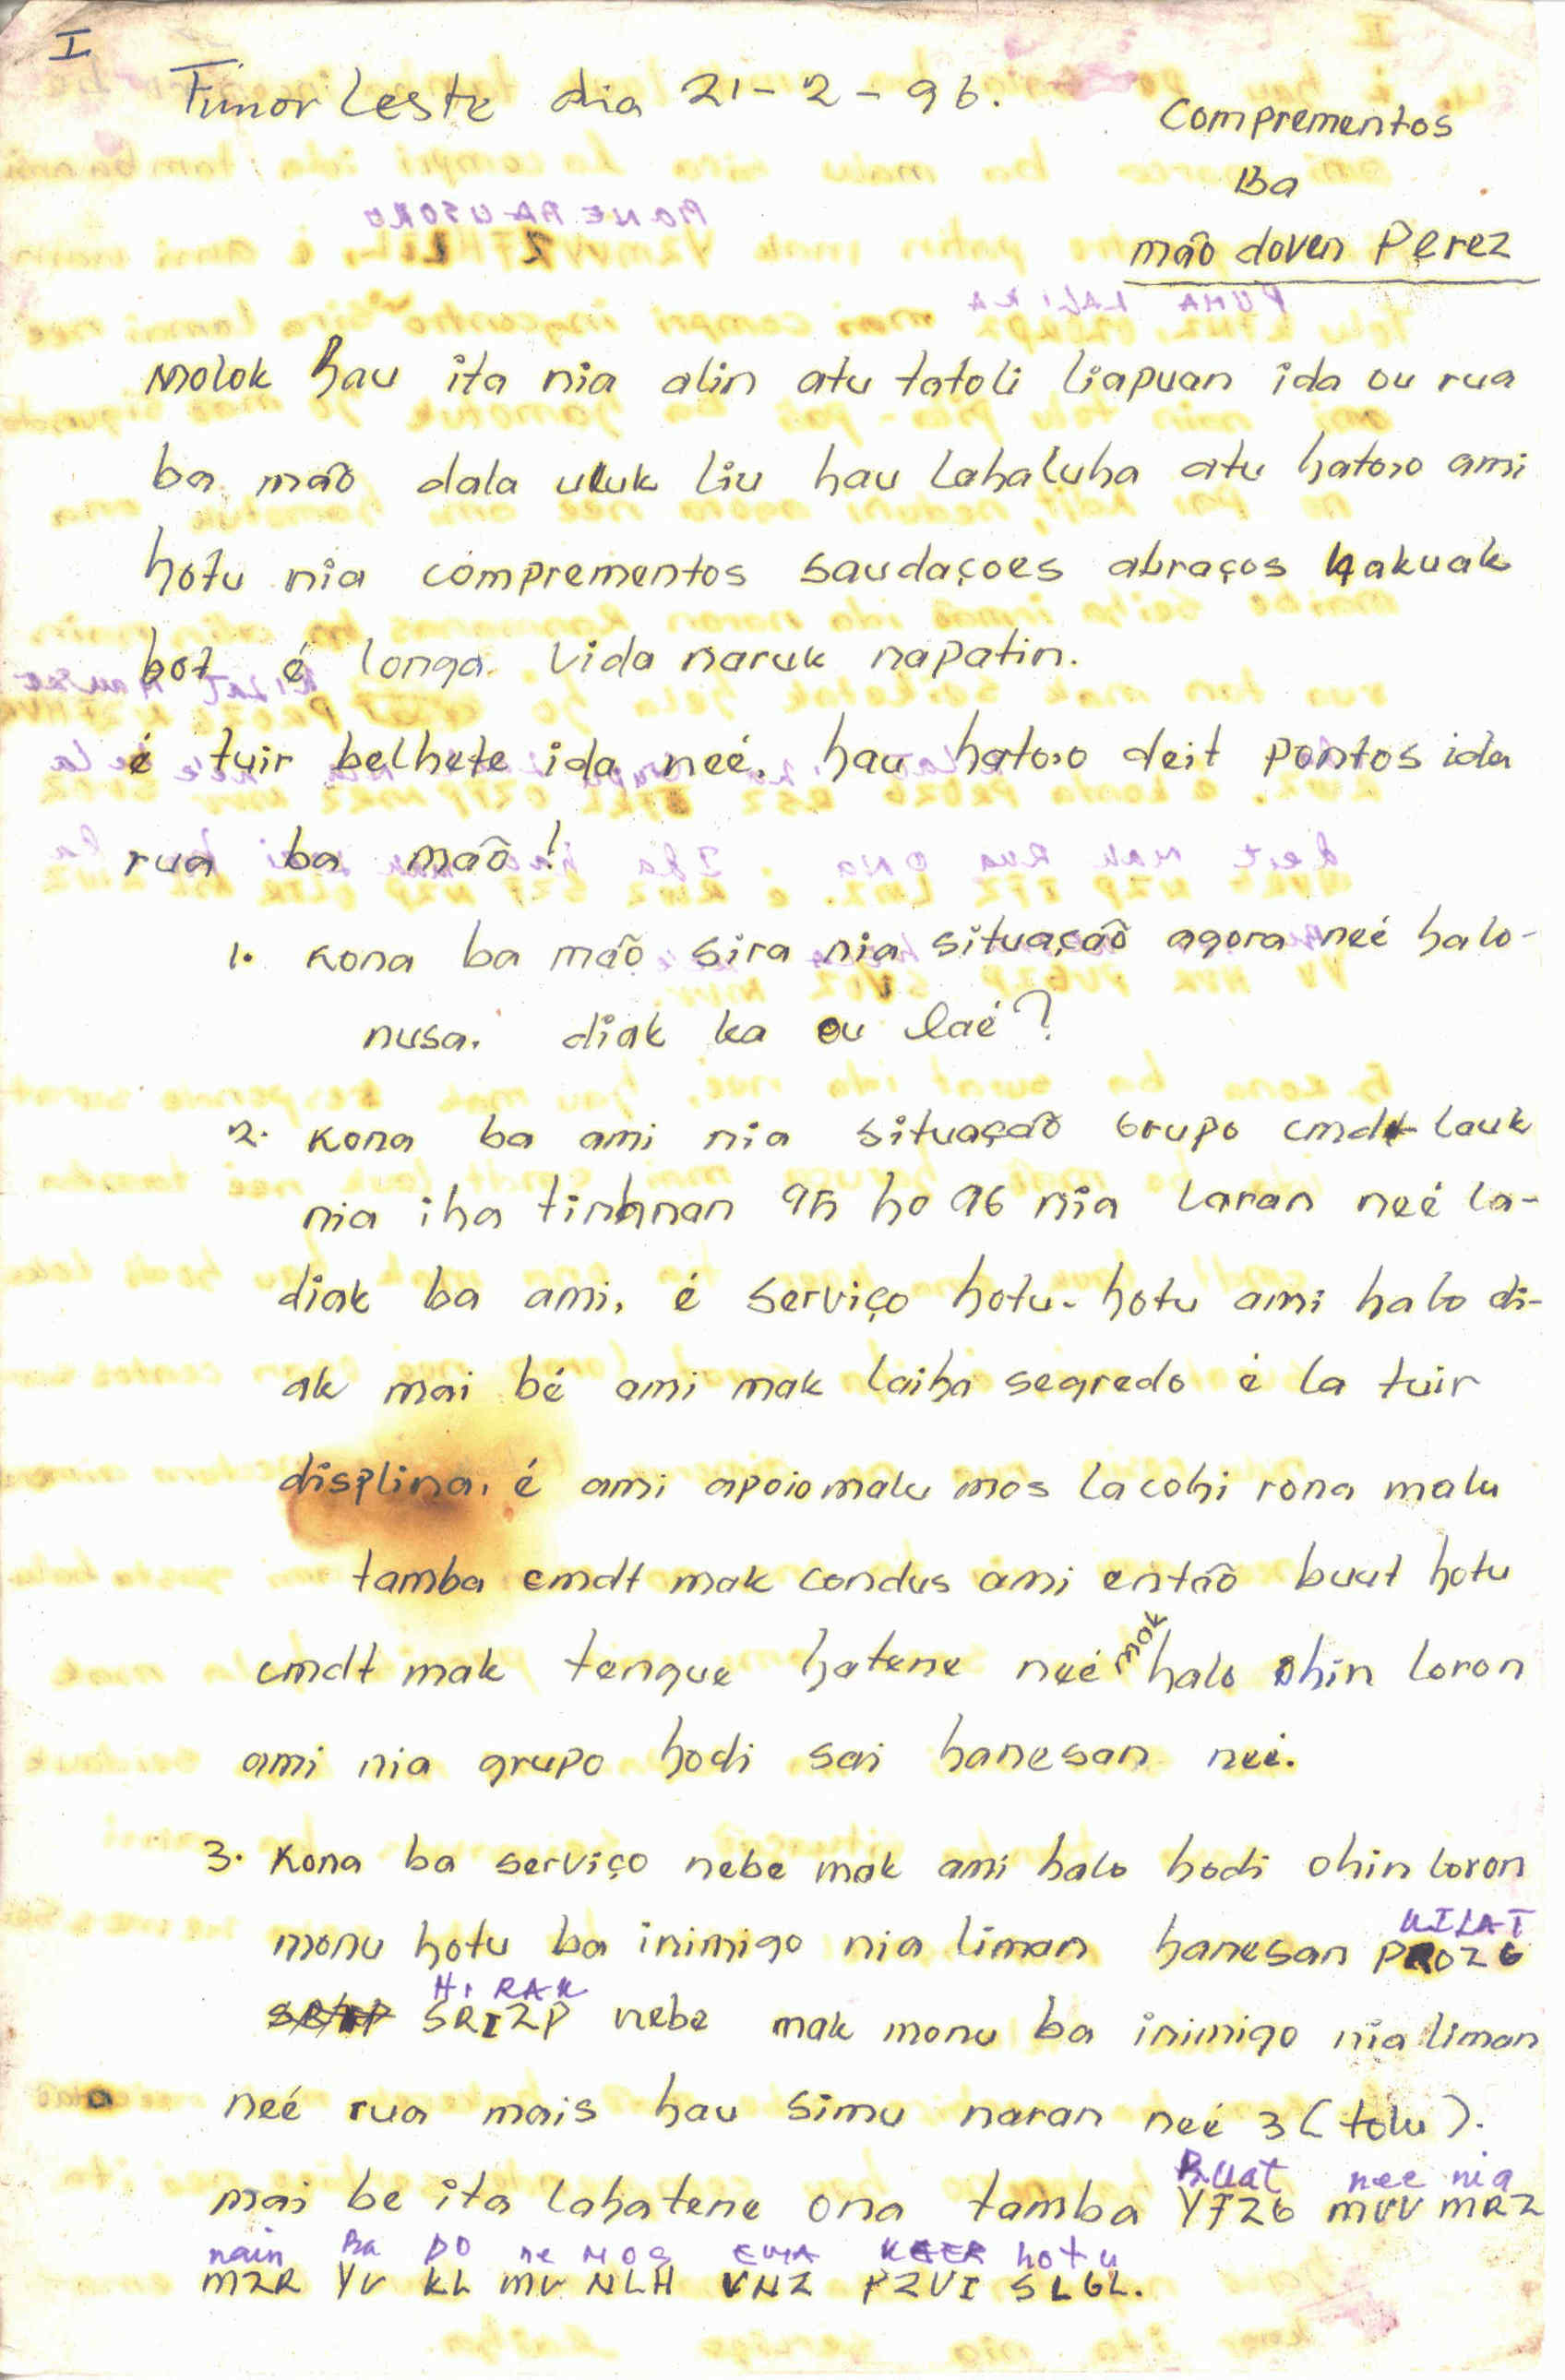 I
Timor Leste dia 21-2-96.
Comprementos
Ba
mão doven Perez
Molok hau ita nia alin atu tatoli liapuan ida ou rua
ba mão dala uluk liu hau lahaluha atu hato,o ami
hotu nia comprementos saudaçoes abraços hakuak
bot é longa vida naruk napatin.
é tuir belhete ida neé. hau hato,o deit pontos ida
rua ba maõ!
1. Kona ba mão sira nia situação agora neé halo-
nusa. diak ka ou laé?
2. Kona ba ami nia situação Grupo cmdt lauk
nia iha tinhnan 95 ho 96 nia laran neé la-
diak ba ami, é serviço hotu-hotu ami halo di-
ak mai bé ami mak laiha segredo é la tuir
displina. é ami apoio malu mos la cohi rona malu
tamba cmdt mak condus ami então buat hotu
cmdt mak tenque hatene neé mak halo ohin loron
ami nia grupo hodi sai hanesan neé.
3. Kona ba serviço nebe mak ami halo hodi ohin loron
KILAT
monu hotu ba inimigo nia liman hanesan PROZG
HIRAK
SRIZP nebe mak monu ba inimigo nia liman
neé rua mais hau simu naran neé 3 (tolu).
Buat nee nia
mai be ita lahatene ona tamba YFZG mvv MRZ
nain Ba PO ne MOS EMA KAER hotu
MZR YV KL MV NLH VNZ PZVI SLGL.